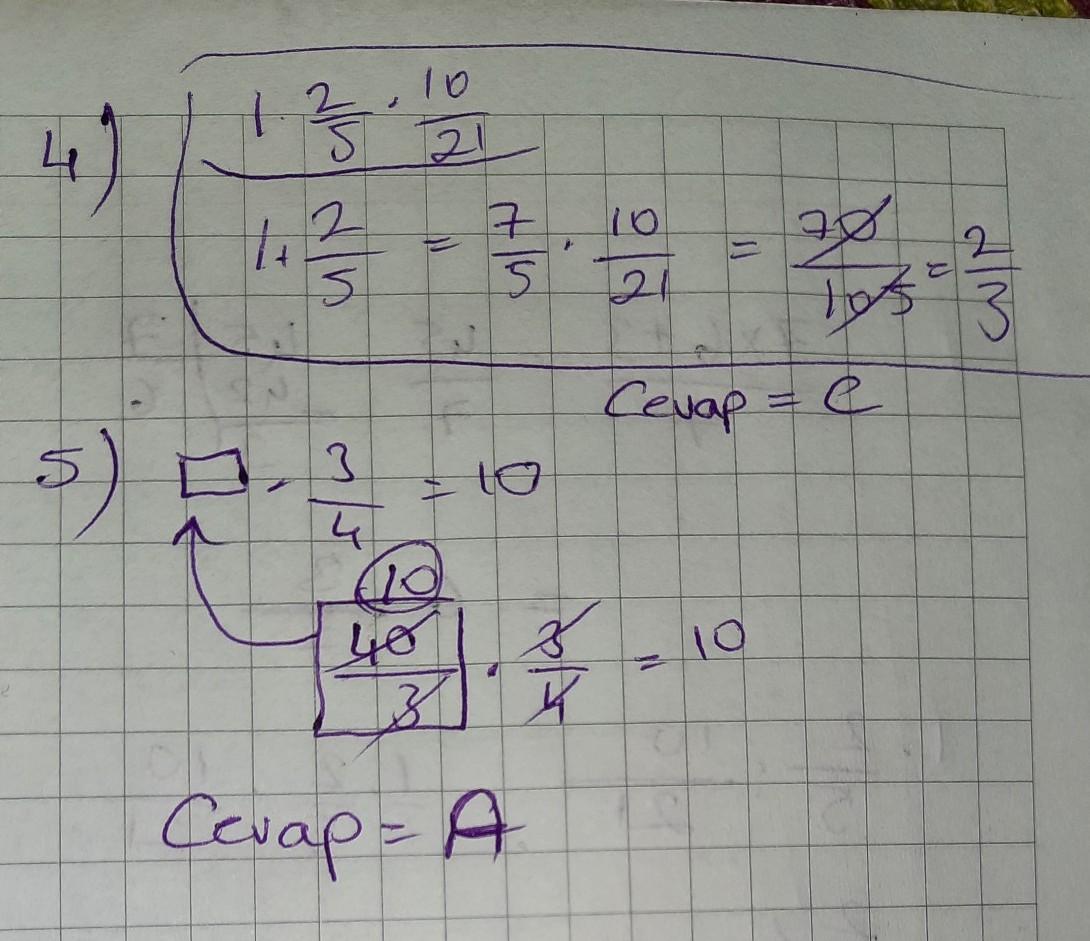 4) 1 2/5 . 10/21
1+ 2/5 = 7/5 . 10/21 = 70/105 = 2/3
Cevap = C
5) □ . 3/4 = 10
10
40/3 . 3/4 = 10
Cevap = A